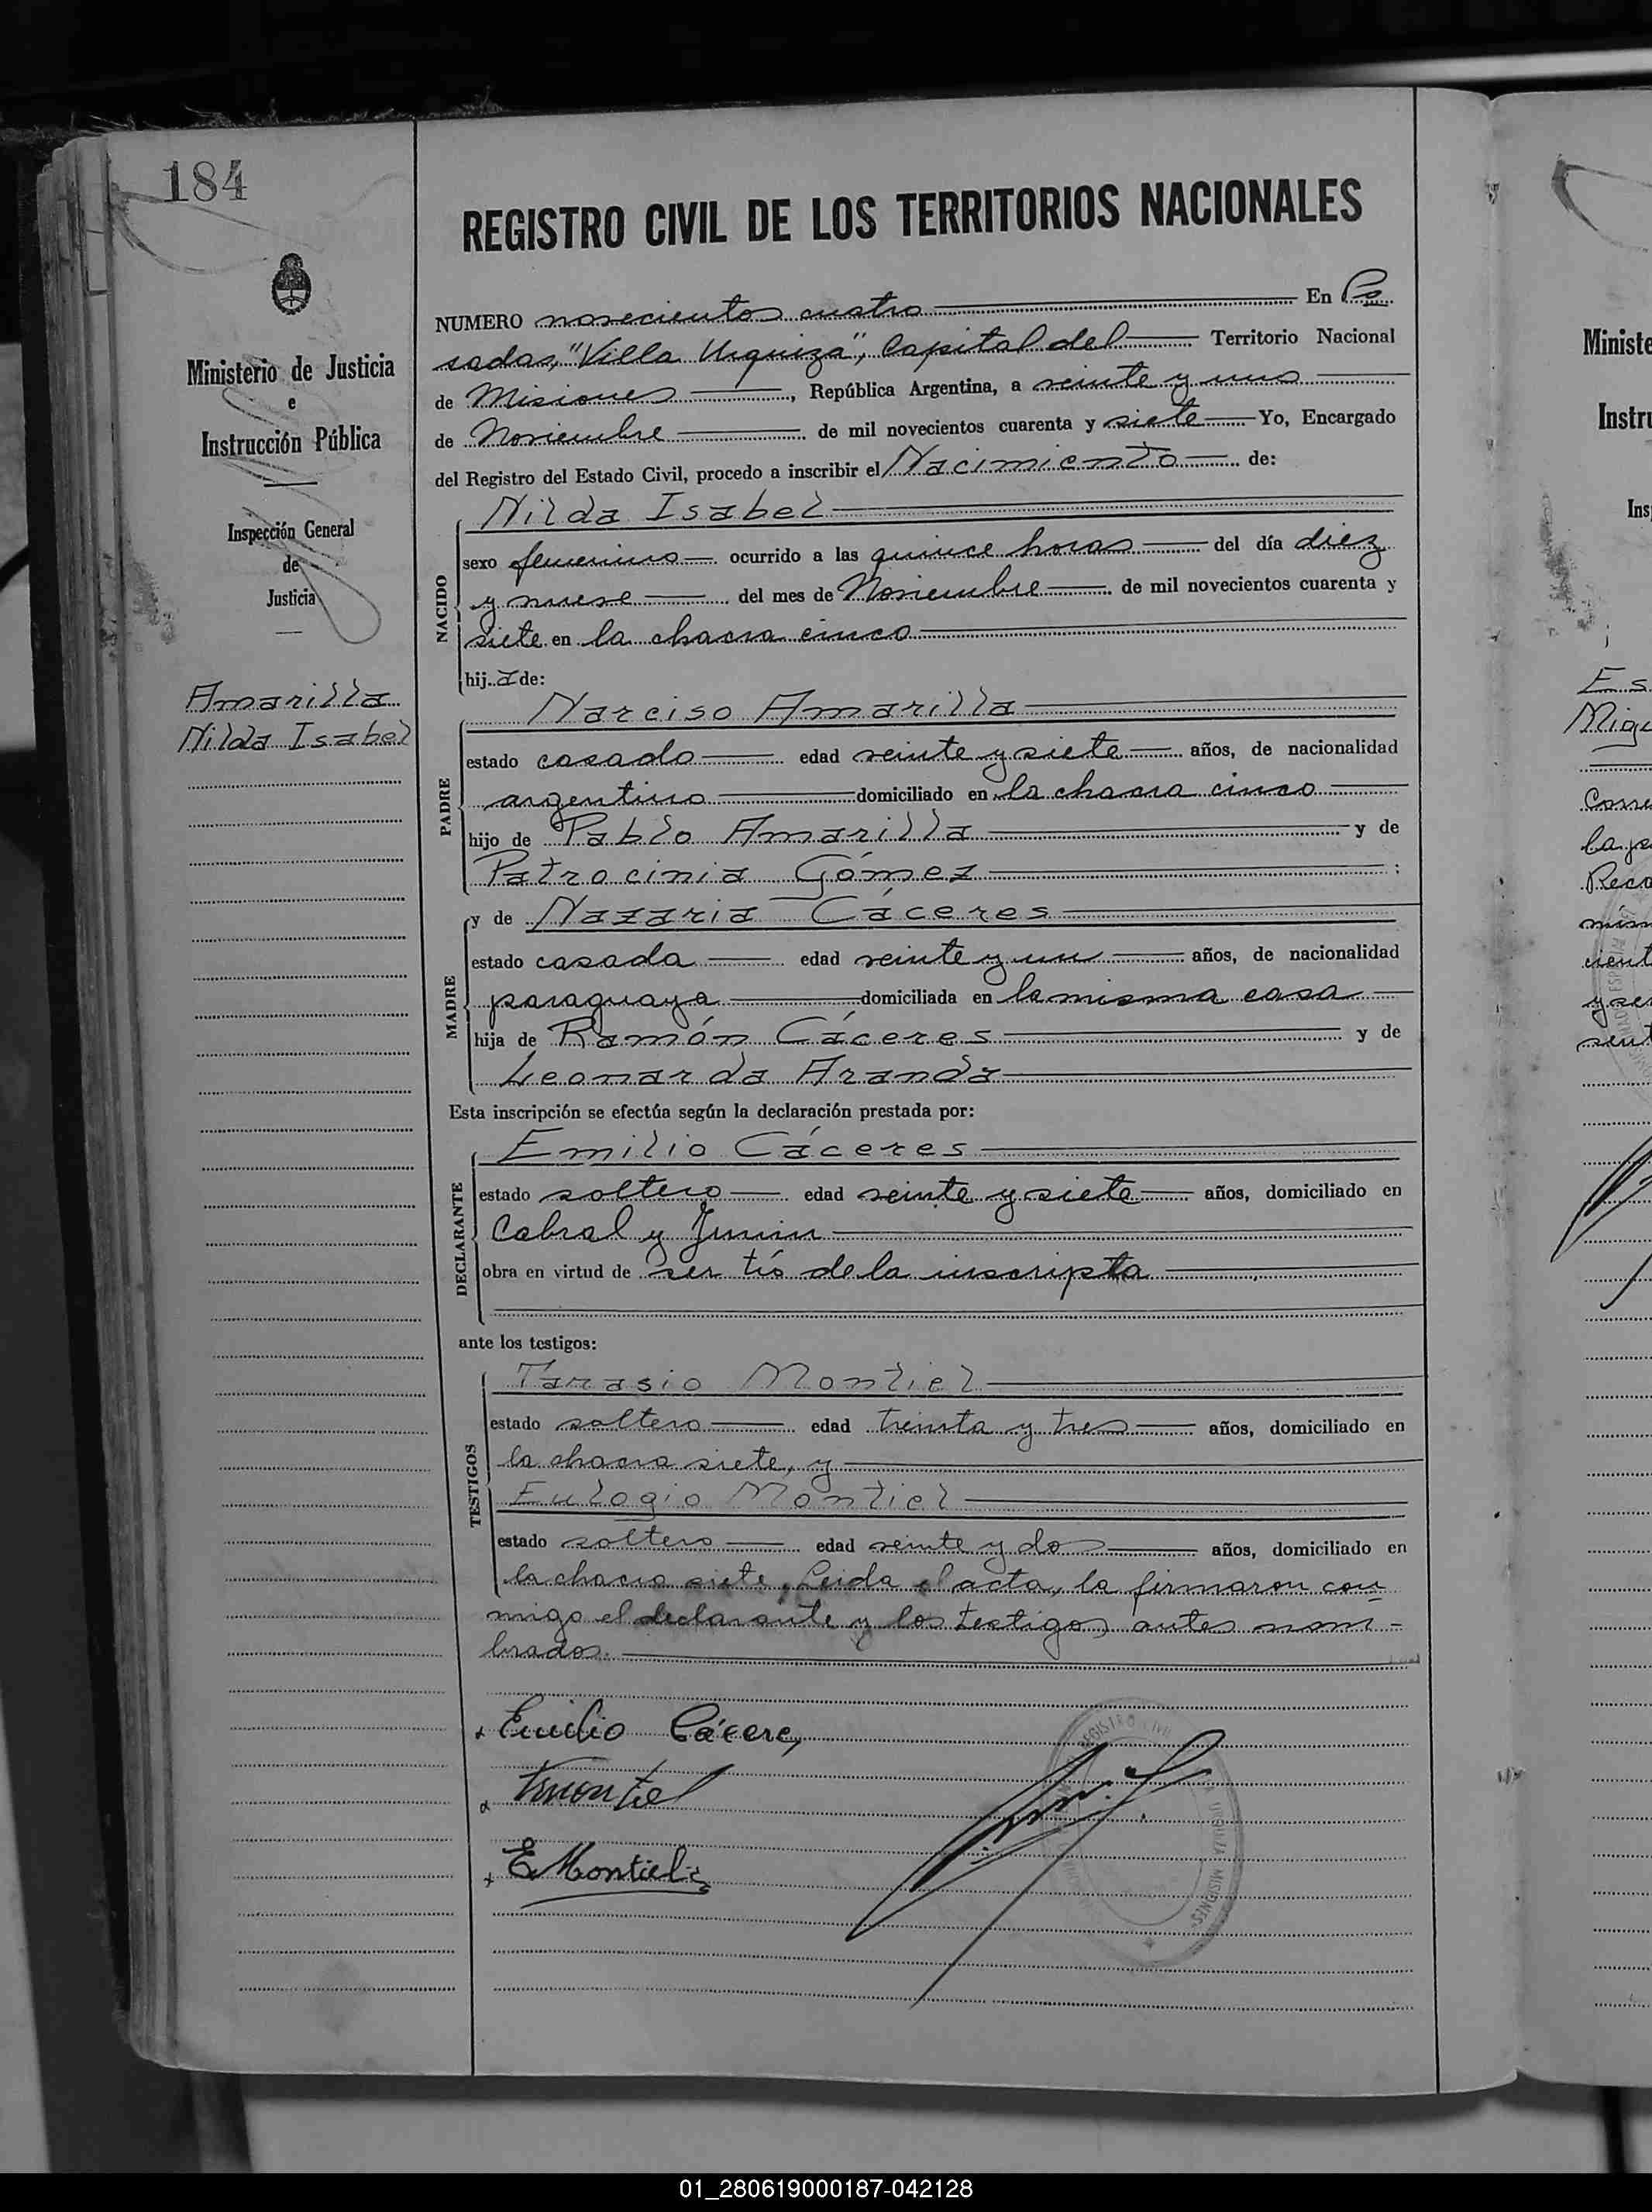 184
REGISTRO CIVIL DE LOS TERRITORIOS NACIONALES
Ministerio de Justicia
e
Instrucción Pública
Inspección General
de
Justicia
Amarilla
Nilda Isabel
NUMERO novecientos cuatro En Po
sadas, "Villa Urquiza", Capital del Territorio Nacional
de Misiones, República Argentina, a veinte y uno
de Noviembre de mil novecientos cuarenta y siete Yo, Encargado
del Registro del Estado Civil, procedo a inscribir el Nacimiento de:
NACIDO
Nilda Isabel
sexo femenino ocurrido a las quince horas del día diez
y nueve del mes de Noviembre de mil novecientos cuarenta y
siete en la chacra cinco
hija de:
PADRE
Narciso Amarilla
estado casado edad veinte y siete años, de nacionalidad
argentino domiciliado en la chacra cinco
hijo de Pablo Amarilla y de
Patrocinia Gómez :
MADRE
y de Nazaria Cáceres
estado casada edad veinte y un años, de nacionalidad
paraguaya domiciliada en la misma casa
hija de Ramón Cáceres y de
Leonarda Aranda
Esta inscripción se efectúa según la declaración prestada por:
DECLARANTE
Emilio Cáceres
estado soltero edad veinte y siete años, domiciliado en
Cabral y Junin
obra en virtud de ser tío de la inscripta
ante los testigos:
TESTIGOS
Tarasio Montiel
estado soltero edad treinta y tres años, domiciliado en
la chacra siete, y
Eulogio Montiel
estado soltero edad veinte y dos años, domiciliado en
la chacra siete. Leida el acta, la firmaron con
migo el declarante y los testigos antes nom-
brados.
Emilio Cáceres
TMontiel
EMontiel
REGISTRO CIVIL
URQUIZA MISIONES
Ministe
Instru
Ins
Es
Migu
01_280619000187-042128